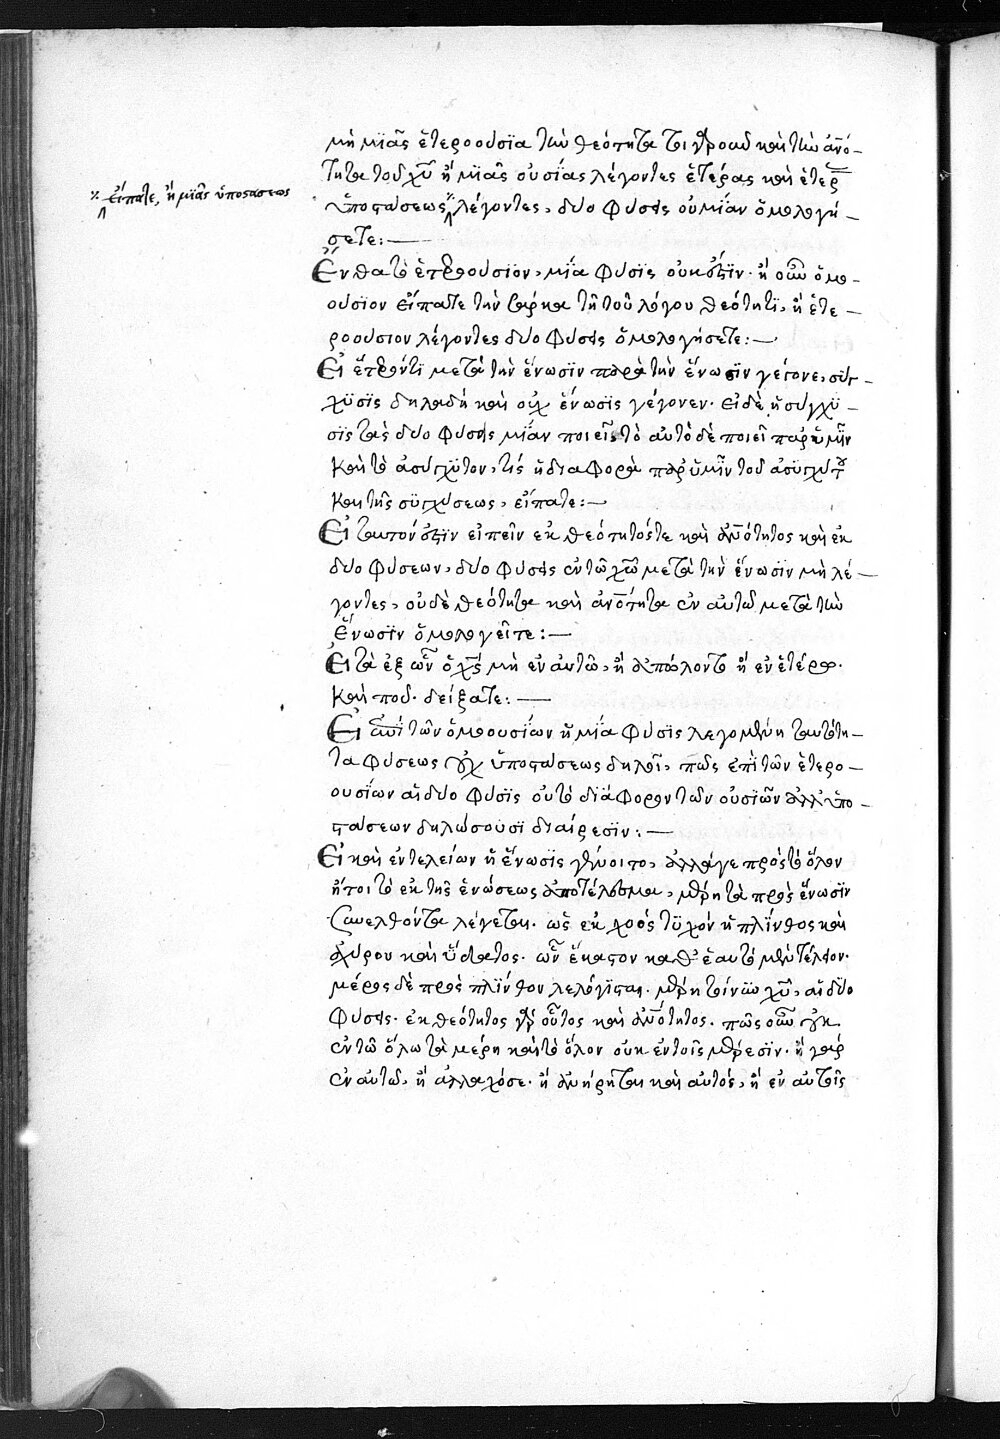 μὴ μϊᾶς ἑτεροουσϊα τὴν θεότητα τοιγαροῦν καὶ τὴν ἀνό-
τητα τοῦ χυ ἢ μϊᾶς οὐσΐας λέγοντες ἑτέρας καὶ ἑτερ
ὑποστάσεως λέγοντες, δύο φύσεις οὐ μΐαν ὁμολογή-
σετε:—
εἴπατε, ἢ μϊᾶς ὑποστάσεως
Ἔνθα τὸ ἑτερούσϊον, μΐα φύσϊς οὐκ ἔστϊν· ἢ οὖν ὁμο-
ούσιον εἴπατε τὴν σάρκα τῇ τοῦ λόγου θεότητϊ, ἢ ἑτε-
ροούσιον λέγοντες δύο φύσεις ὁμολογήσετε:—
Εἰ μετὰ τὴν ἕνωσϊν παρὰ τὴν ἕνωσϊν γέγονε, σύγ-
χϋσϊς δηλαδὴ καὶ οὐχ ἕνωσϊς γέγονεν· εἰ δὲ ἡ σύγχϋ-
σϊς τὰς δύο φύσεις μΐαν ποιεῖ, τὸ αὐτὸ δὲ ποιεῖ παρ' ὑμῖν
καὶ τὸ ἀσύγχϋτον, τίς ἡ διαφορὰ παρ' ὑμῖν τοῦ ἀσϋγχύτου
καὶ τῆς σϋγχύσεως, εἴπατε:—
Εἰ ταυτόν ἐστϊν εἰπεῖν ἐκ θεότητός τε καὶ ἀνότητος καὶ ἐκ
δύο φύσεων, δύο φύσεις ἐν τῷ χω μετὰ τὴν ἕνωσϊν μὴ λέ-
γοντες, οὐδὲ θεότητα καὶ ἀνότητα ἐν αὐτῷ μετὰ τὴν
ἕνωσϊν ὁμολογεῖτε:—
Εἰ τὰ ἐξ ὧν ὁ χς μὴ ἐν αὐτῷ, ἢ ἀπώλοντο ἢ ἐν ἑτέρῳ·
καὶ ποῦ· δείξατε:—
Εἰ ἐπὶ τῶν ὁμοουσΐων ἡ μΐα φύσϊς λεγομένη ταυτότη-
τα φύσεως οὐχ ὑποστάσεως δηλοῖ, πῶς ἐπὶ τῶν ἑτερο-
ουσΐων αἱ δύο φύσϊς οὐ τὸ δϊάφορον τῶν οὐσϊῶν ἀλλ' ὑπο-
στάσεων δηλώσουσϊ διαίρεσϊν:—
Εἰ καὶ ἐν τελείων ἡ ἕνωσϊς γένοιτο, ἀλλάγε πρὸς τὸ ὅλον
ἤτοι τὸ ἐκ τῆς ἑνώσεως ἀποτέλεσμα, μέρη τὰ πρὸς ἕνωσϊν
συνελθόντα λέγεται· ὡς ἐκ χοός τϋχόν ἡ πλΐνθος καὶ
ἀχύρου καὶ ὕδατος· ὧν ἕκαστον καθ' ἑαυτὸ μὲν τέλειον·
μέρος δὲ πρὸς πλΐνθον λελόγϊσται· μέρη τοίνϋν χυ, αἱ δύο
φύσεις· ἐκ θεότητος γὰρ οὗτος καὶ ἀνότητος· πῶς οὖν οὐκ
ἐν τῷ ὅλω τὰ μέρη καὶ τὸ ὅλον οὐκ ἐν τοῖς μέρεσϊν· ἢ γὰρ
ἐν αὐτῷ, ἢ ἀλλαχόσε· ἢ ἀνήρηται καὶ αὐτός, ἢ ἐν αὐτοῖς